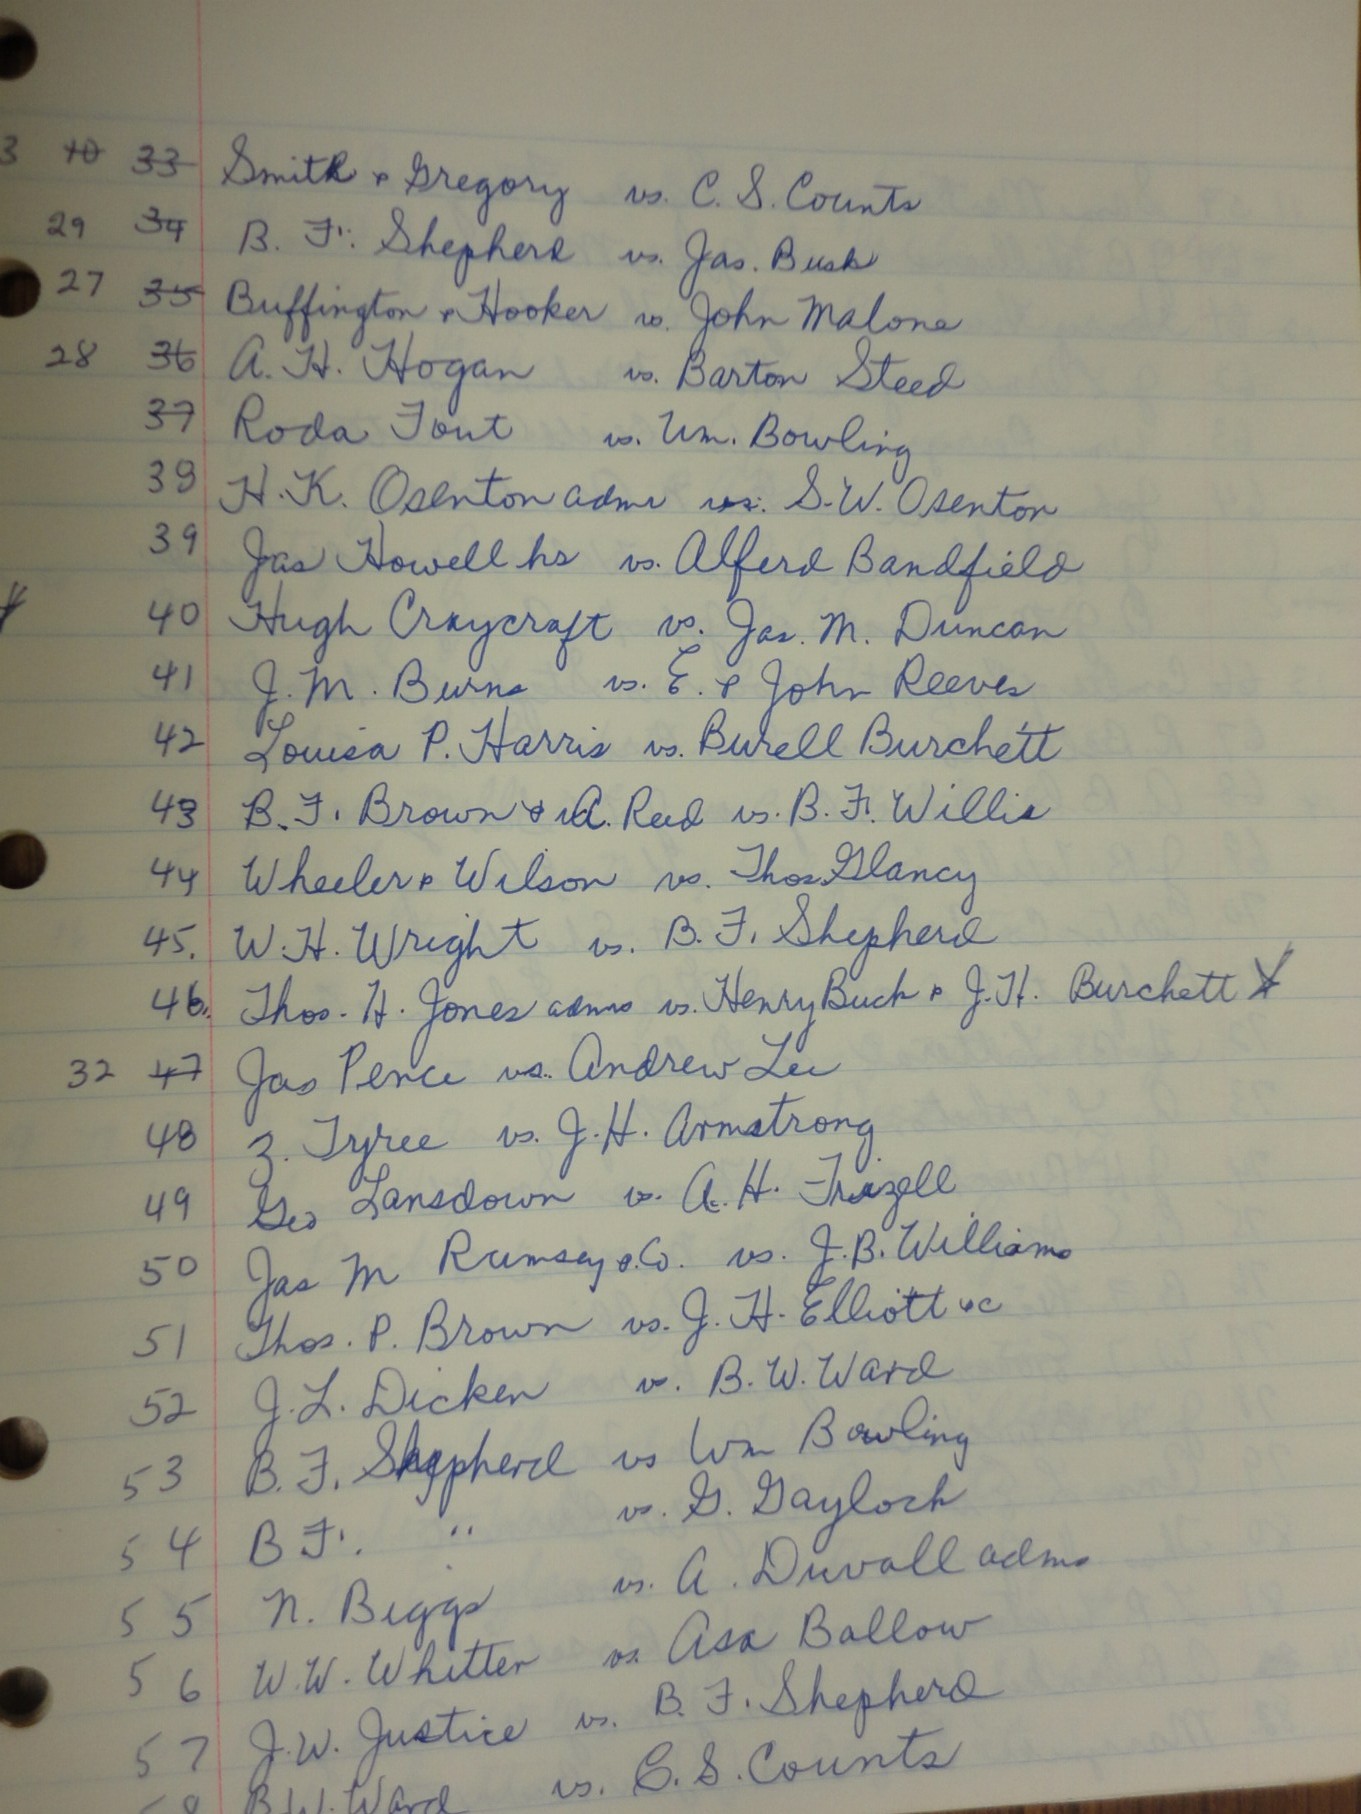 3 10 33 Smith & Gregory vs. C. S. Counts
29 34 B. F. Shepherd vs. Jas. Busk
27 35 Buffington & Hooker vs. John Malone
28 36 A. H. Hogan vs. Barton Steed
37 Roda Fout vs. Wm. Bowling
38 H. K. Osenton admr vs. S. W. Osenton
39 Jas Howell hs vs. Alferd Bandfield
40 Hugh Craycraft vs. Jas. M. Duncan
41 J. M. Burns vs. E. & John Reeves
42 Louisa P. Harris vs. Burell Burchett
43 B. F. Brown & A. Reed vs. B. F. Willis
44 Wheeler & Wilson vs. Thos. Glancy
45. W. H. Wright vs. B. F. Shepherd
46. Thos. H. Jones admrs vs. Henry Buck & J. H. Burchett
32 47 Jas Pence vs. Andrew Lee
48 Z. Tyree vs. J. H. Armstrong
49 Geo Lansdown vs. A. H. Frizzell
50 Jas M Rumsey & Co. vs. J. B. Williams
51 Thos. P. Brown vs. J. H. Elliott &c
52 J. L. Dicken vs. B. W. Ward
53 B. F. Shepherd vs Wm Bowling
54 B F. " vs. G. Gaylock
55 N. Biggs vs. A. Duvall adms
56 W. W. Whitter vs. Asa Ballow
57 J. W. Justice vs. B. F. Shepherd
58 B. W. Ward vs. C. S. Counts